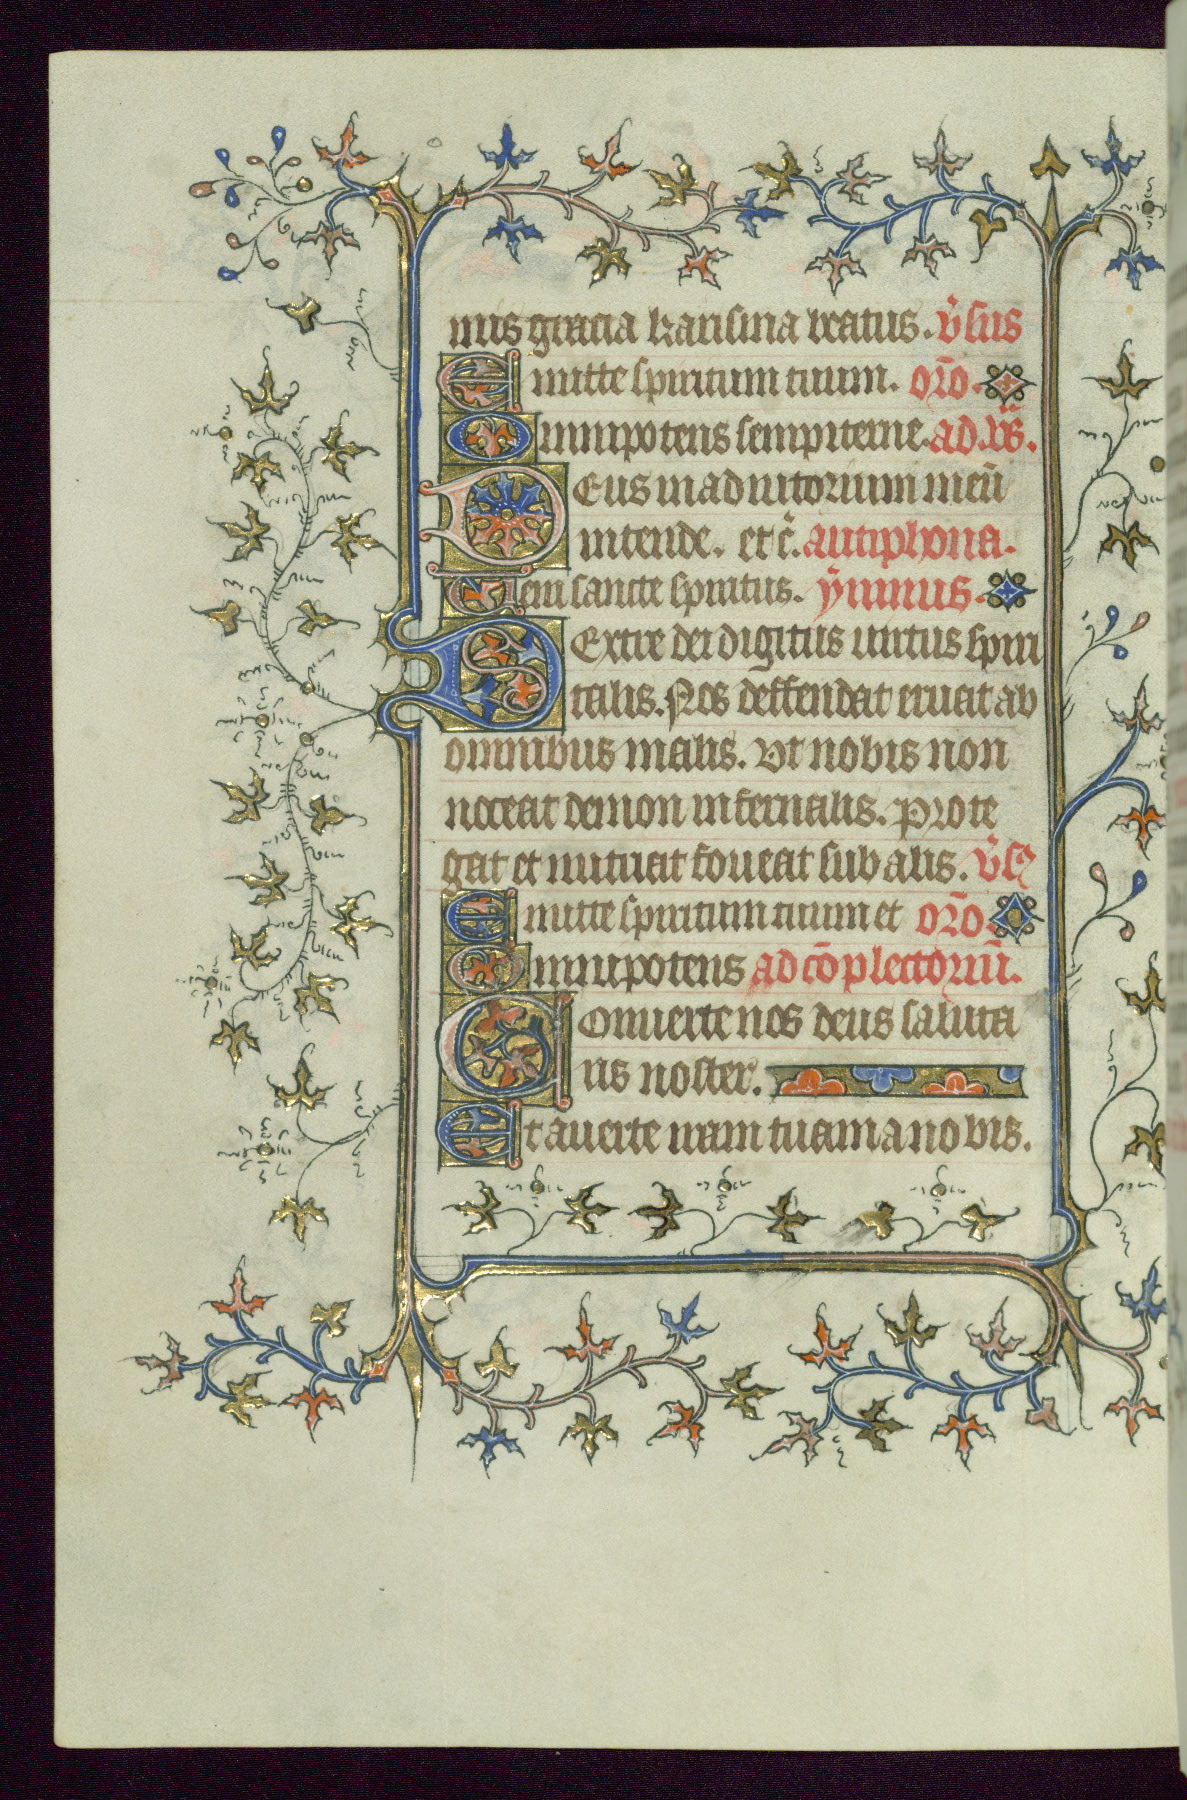 mus gracia karisma beatus. v̄sus
Emitte spiritum tuum. or̄o.
Omnipotens sempiterne. ad. vs̄.
Deus in adiutorium meū
intende. et c̄. antiphona.
Veni sancte spiritus. ymnus.
Dextre dei digitus uirtus spiri
talis. Nos deffendat eruat ab
omnibus malis. Vt nobis non
noceat demon infernalis. Prote
gat et nutriat foueat sub alis. v̄s
Emitte spiritum tuum et or̄o.
Omnipotens ad cōplectoriū.
Conuerte nos deus saluta
ris noster.
Et auerte iram tuam a nobis.